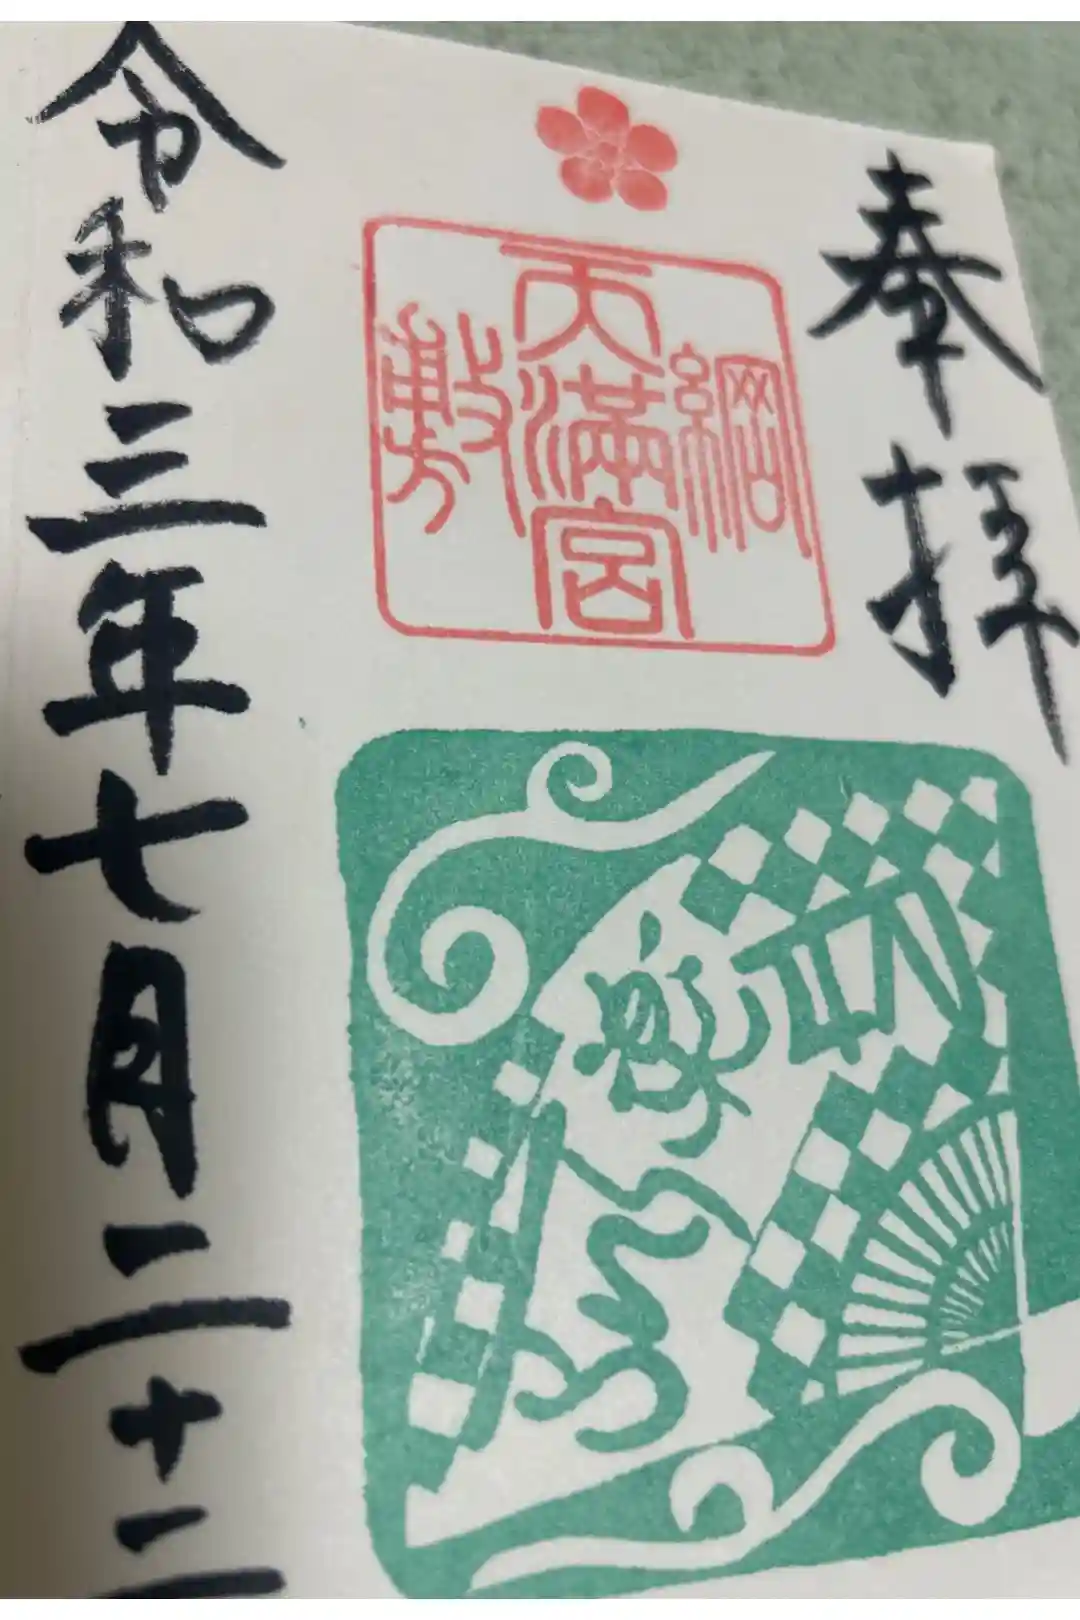 奉拝
綱
天満宮
敷
令和三年七月二十二